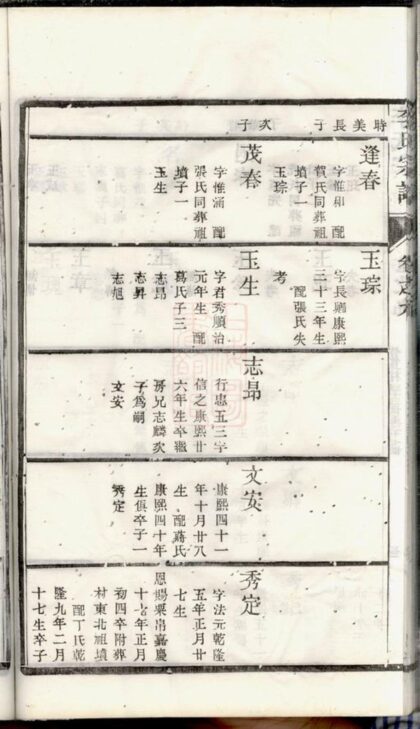 時美長子
次子
逢春
字惟和 配
賈氏同葬祖
墳子一
玉琮
茂春
字惟涵 配
張氏同葬祖
墳子一
玉生
玉琮
字長 康熙
二十三年生
配張氏失
考
玉生
字君秀順治
元年生 配
葛氏子三
志昂
志昇
志旭
志昂
行忠五三字
信之康熙廿
六年生卒繼
房兄志麟次
子爲嗣
文安
文安
康熙四十一
年十月廿八
生 配蔣氏
康熙四十年
生俱卒子一
秀定
秀定
字法元乾隆
五年正月廿
七生
恩賜粟帛嘉慶
十七年正月
初四卒附葬
村東北祖墳
配丁氏乾
隆九年二月
十七生卒子